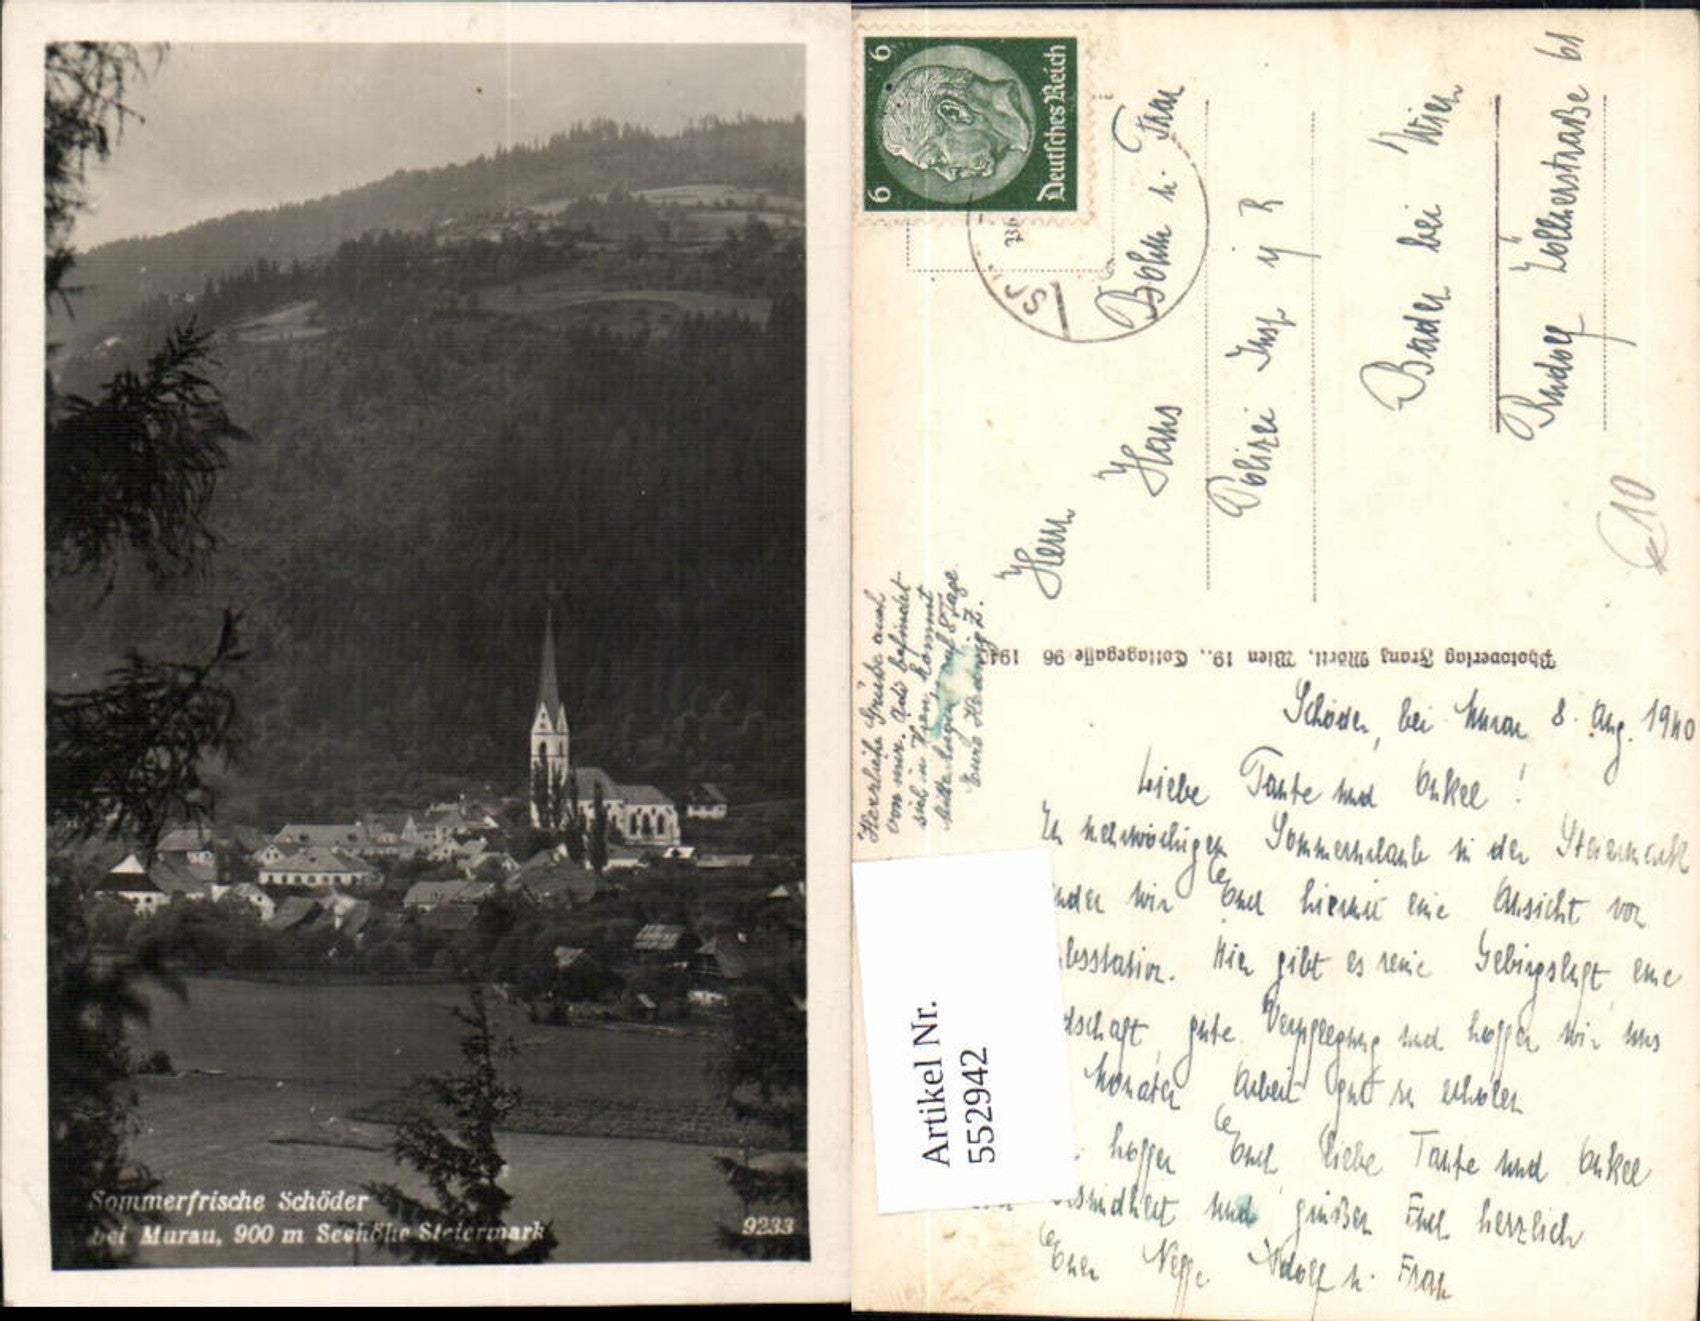 Sommerfrische Schöder
bei Murau, 900 m Seehöhe Steiermark
9233
6 6
Deutsches Reich
Herrn
Hans Böhm u. Frau
Polizei Insp i/ R
Baden bei Wien
Rudolf Zöllnerstraße 61
€ 10
Photoverlag Franz Mörtl, Wien 19., Cottagegasse 96 194
Herzliche Grüße auch
von mir. befindet
sich in Wien kommt
bitte auf 8 Tage
Eure Hedwig Z.
Schöder, bei Murau 8. Aug. 1940
Liebe Tante und Onkel!
In Sommerurlaub in der Steiermark
wir Euch hiermit eine Ansicht von
Hier gibt es reine Gebirgsluft, eine
gute Verpflegung und hoffen wir uns
Monaten Arbeit gut zu erholen
hoffen Euch, liebe Tante und Onkel
und grüßen Euch herzlich
Euer Neffe Adolf u. Frau
Artikel Nr.
5529942